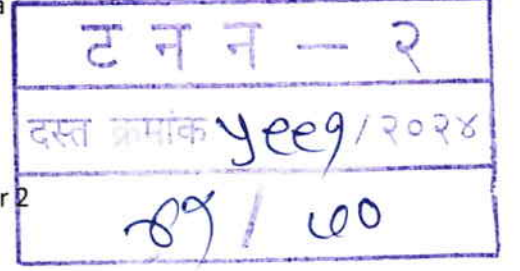 a
ट न न — २
दस्त क्रमांक ५९९१/२०२४
r 2
४१ / ७०